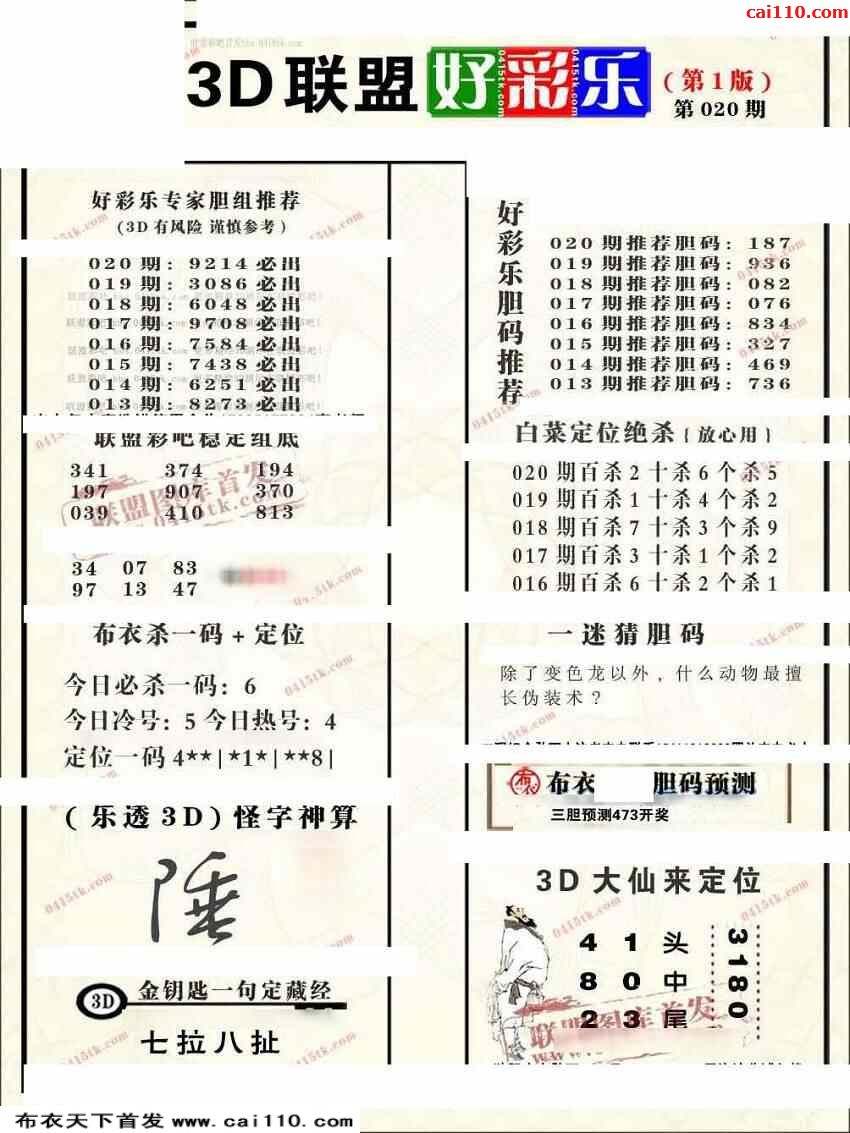 cai110.com
3D联盟好彩乐
(第1版)
第020期
好彩乐专家胆组推荐
(3D有风险 谨慎参考)
020期: 9214必出
019期: 3086必出
018期: 6048必出
017期: 9708必出
016期: 7584必出
015期: 7438必出
014期: 6251必出
013期: 8273必出
联盟彩吧稳定组底
341 374 194
197 907 370
039 410 813
34 07 83
97 13 47
布衣杀一码+定位
今日必杀一码: 6
今日冷号: 5 今日热号: 4
定位一码 4**|*1*|**8|
(乐透3D)怪字神算
陲
3D 金钥匙一句定藏经
七拉八扯
好彩乐胆码推荐
020期推荐胆码: 187
019期推荐胆码: 936
018期推荐胆码: 082
017期推荐胆码: 076
016期推荐胆码: 834
015期推荐胆码: 327
014期推荐胆码: 469
013期推荐胆码: 736
白菜定位绝杀{放心用}
020期百杀2十杀6个杀5
019期百杀1十杀4个杀2
018期百杀7十杀3个杀9
017期百杀3十杀1个杀2
016期百杀6十杀2个杀1
一迷猜胆码
除了变色龙以外，什么动物最擅
长伪装术？
布衣 胆码预测
三胆预测473开奖
3D大仙来定位
4 1 头
8 0 中
2 3 尾
3180
联盟图库首发
0415tk.com
布衣天下首发 www.cai110.com